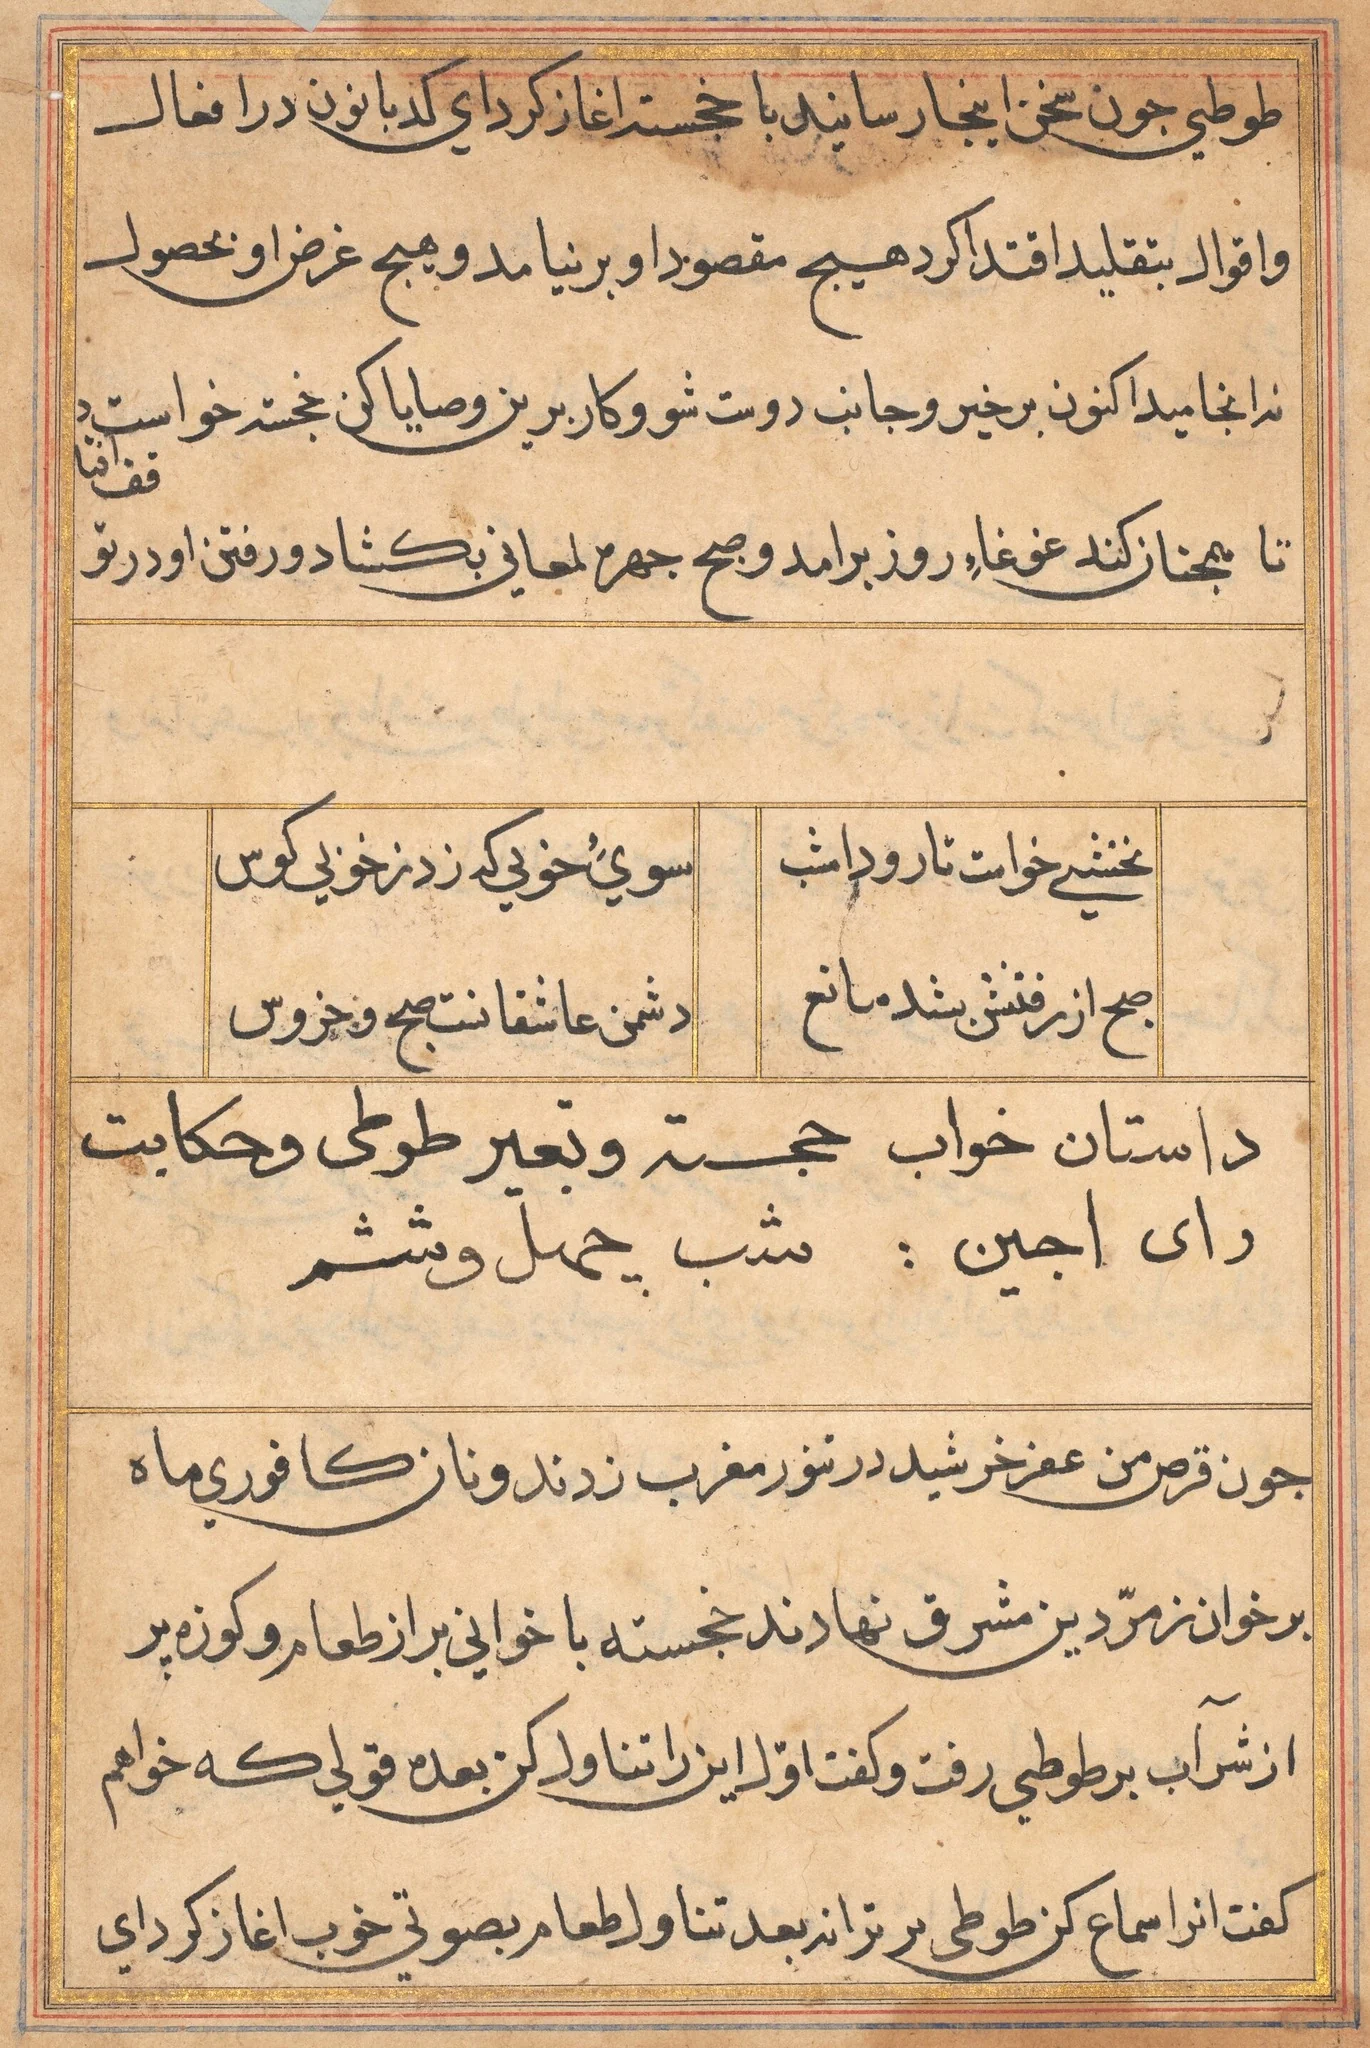 طوطي جون سخن اينجا رسانيد با خجسته اغاز كرد اي كدبانو ن در افعال
و اقوال بتقليد اقتدا كرد هيج مقصود او بر نيامد و هيج غرض او بحصول
نه انجاميد اكنون بر خيز و جانب دوست شو و كار برين وصايا كن خجسته خواست
تا بجنان كند غوغاء روز برامد و صبح جهره لمعاني بكشاد و رفتن او در تو
قف افتا
د
نخشبي خواست تا رود امشب
سوي خوبي كه زد ز خوبي كوس
صبح از رفتنش بشده مانع
دشمن عاشقانست صبح و خروس
داستان خواب حجسته و تعبير طوطی و حکایت
رای اجین : شب چهل و ششم
جون قرص من عفر خرشيد در تنور مغرب زدند و نان كافوري ماه
بر خوان زمرّدين مشرق نهادند خجسته با خواني بر از طعام و كوزه پر
از شرآب بر طوطي رفت و كفت اوّل اين را تناول كن بعده قولي كه خواهم
كفت انرا سماع كن طوطی بر ترانه بعد تناول طعام بصوتي خوب اغاز كرد اي